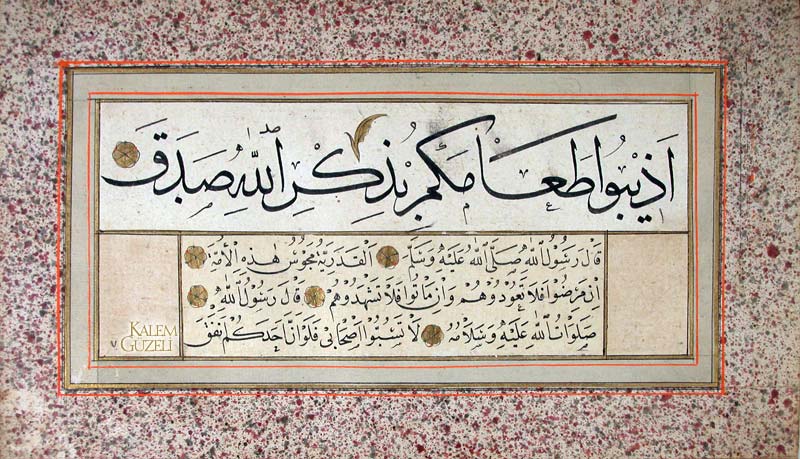 اَذيبُوا طَعَامَكُمْ بِذِكْرِ اللّٰهِ صَدَقَ
قَالَ رَسُولُ اللّٰهِ صَلَّى اللّٰهُ عَلَيْهِ وَسَلَّمَ اَلْقَدَرِيَّةُ مَجُوسُ هٰذِهِ الْاُمَّةِ
اِنْ مَرِضُوا فَلَا تَعُودُوهُمْ وَاِنْ مَاتُوا فَلَا تَشْهَدُوهُمْ قَالَ رَسُولُ اللّٰهِ
صَلَوَاتُ اللّٰهِ عَلَيْهِ وَسَلَامُهُ لَا تَسُبُّوا اَصْحَابِى فَلَوْ اَنَّ اَحَدَكُمْ اَنْفَقَ
KALEM
GÜZELİ
٧